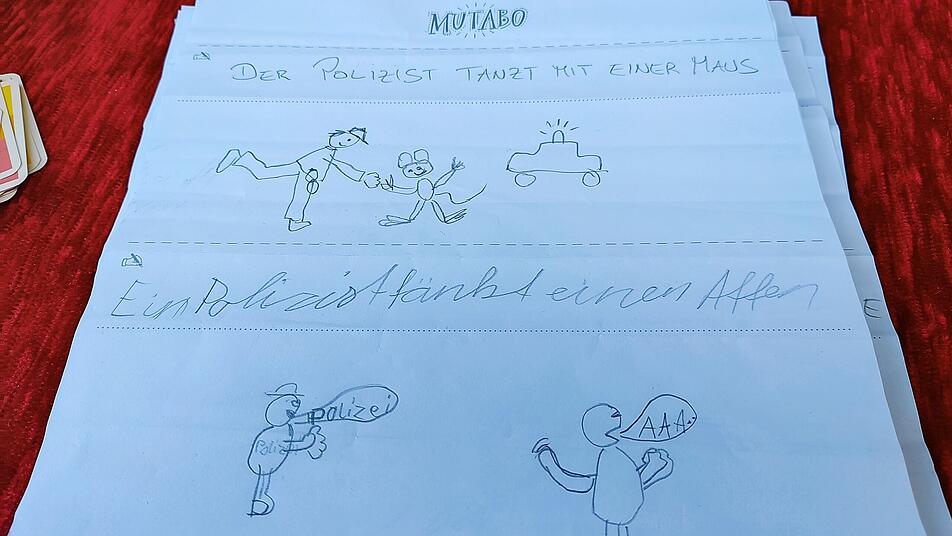 MUTABO
DER POLIZIST TANZT MIT EINER MAUS
Ein Polizist fänkt einen Affen
Polizei
Polizei
AAA..
E